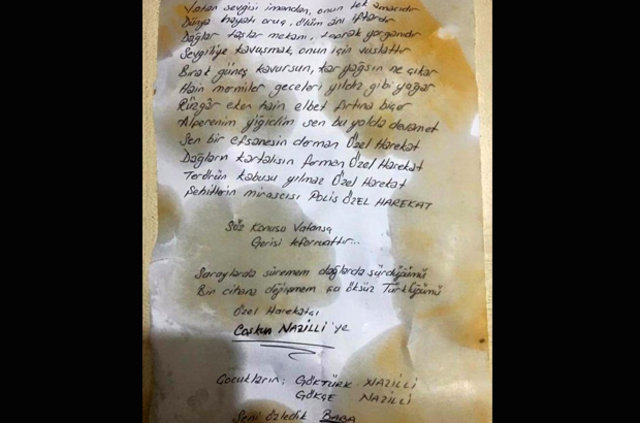 Vatan sevgisi imandan, onun tek amacıdır
Dünya hayatı oruç, ölüm anı iftardır
Dağlar taşlar mekanı, toprak yorganıdır
Sevgiliye kavuşmak, onun için vuslattır
Bırak güneş kavursun, kar yağsın ne çıkar
Hain mermiler geceleri yıldız gibi yağar
Rüzgâr eken hain elbet fırtına biçer
Alperenim yiğidim sen bu yolda devam et
Sen bir efsanesin derman Özel Harekat
Dağların kartalısın ferman Özel Harekat
Terörün kabusu yılmaz Özel Harekat
Şehitlerin mirasçısı Polis ÖZEL HAREKAT
Söz Konusu Vatansa
Gerisi teferruattır...
Saraylarda süremem dağlarda sürdüğümü
Bin cihana değişmem şu öksüz Türklüğümü
Özel Harekatçı
Coşkun NAZİLLİ'ye
Çocukların; GÖKTÜRK NAZİLLİ
GÖKÇE NAZİLLİ
Seni özledik BABA